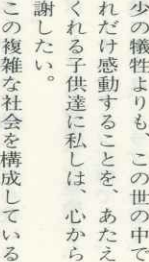 少の犠牲よりも、この世の中で
れだけ感動することを、あたえ
くれる子供達に私しは、心から
謝したい。
この複雑な社会を構成している